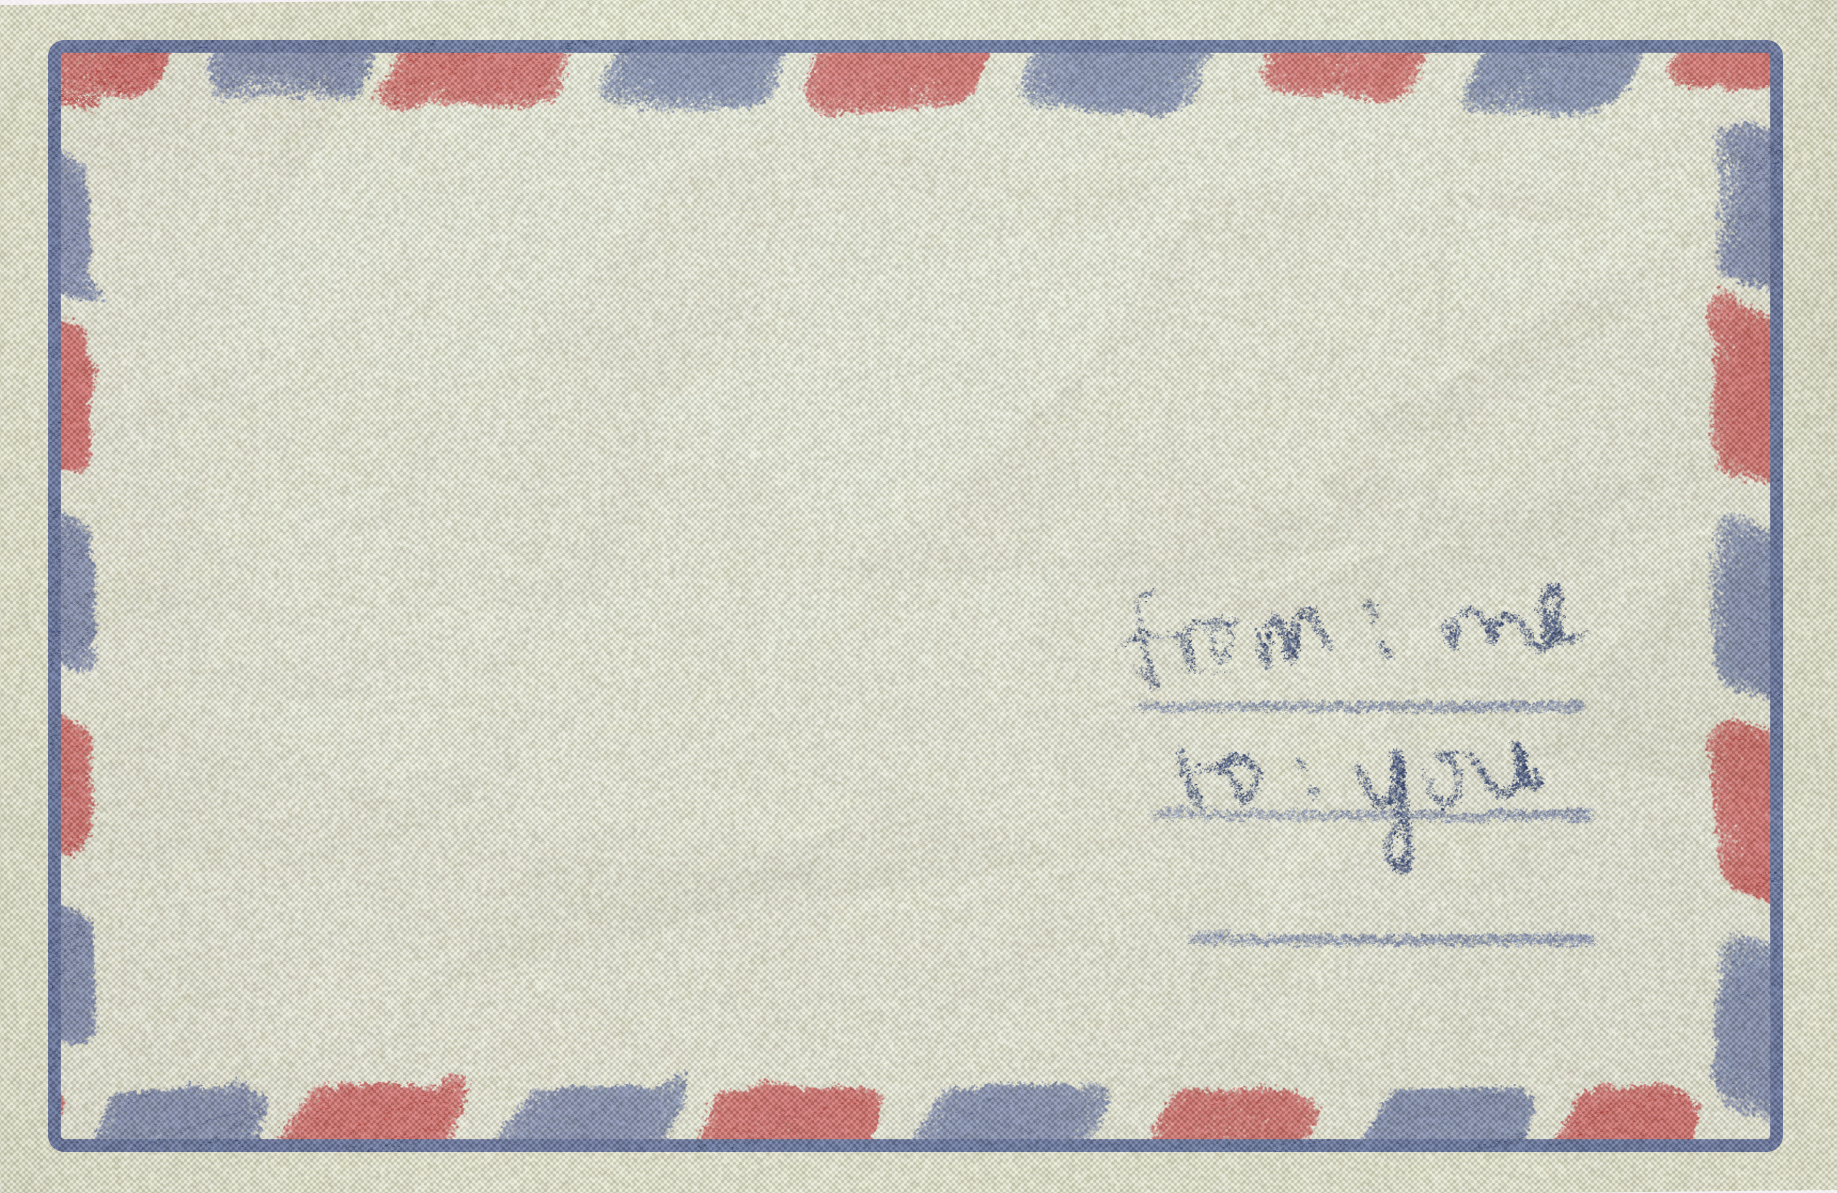 from: me
to: you